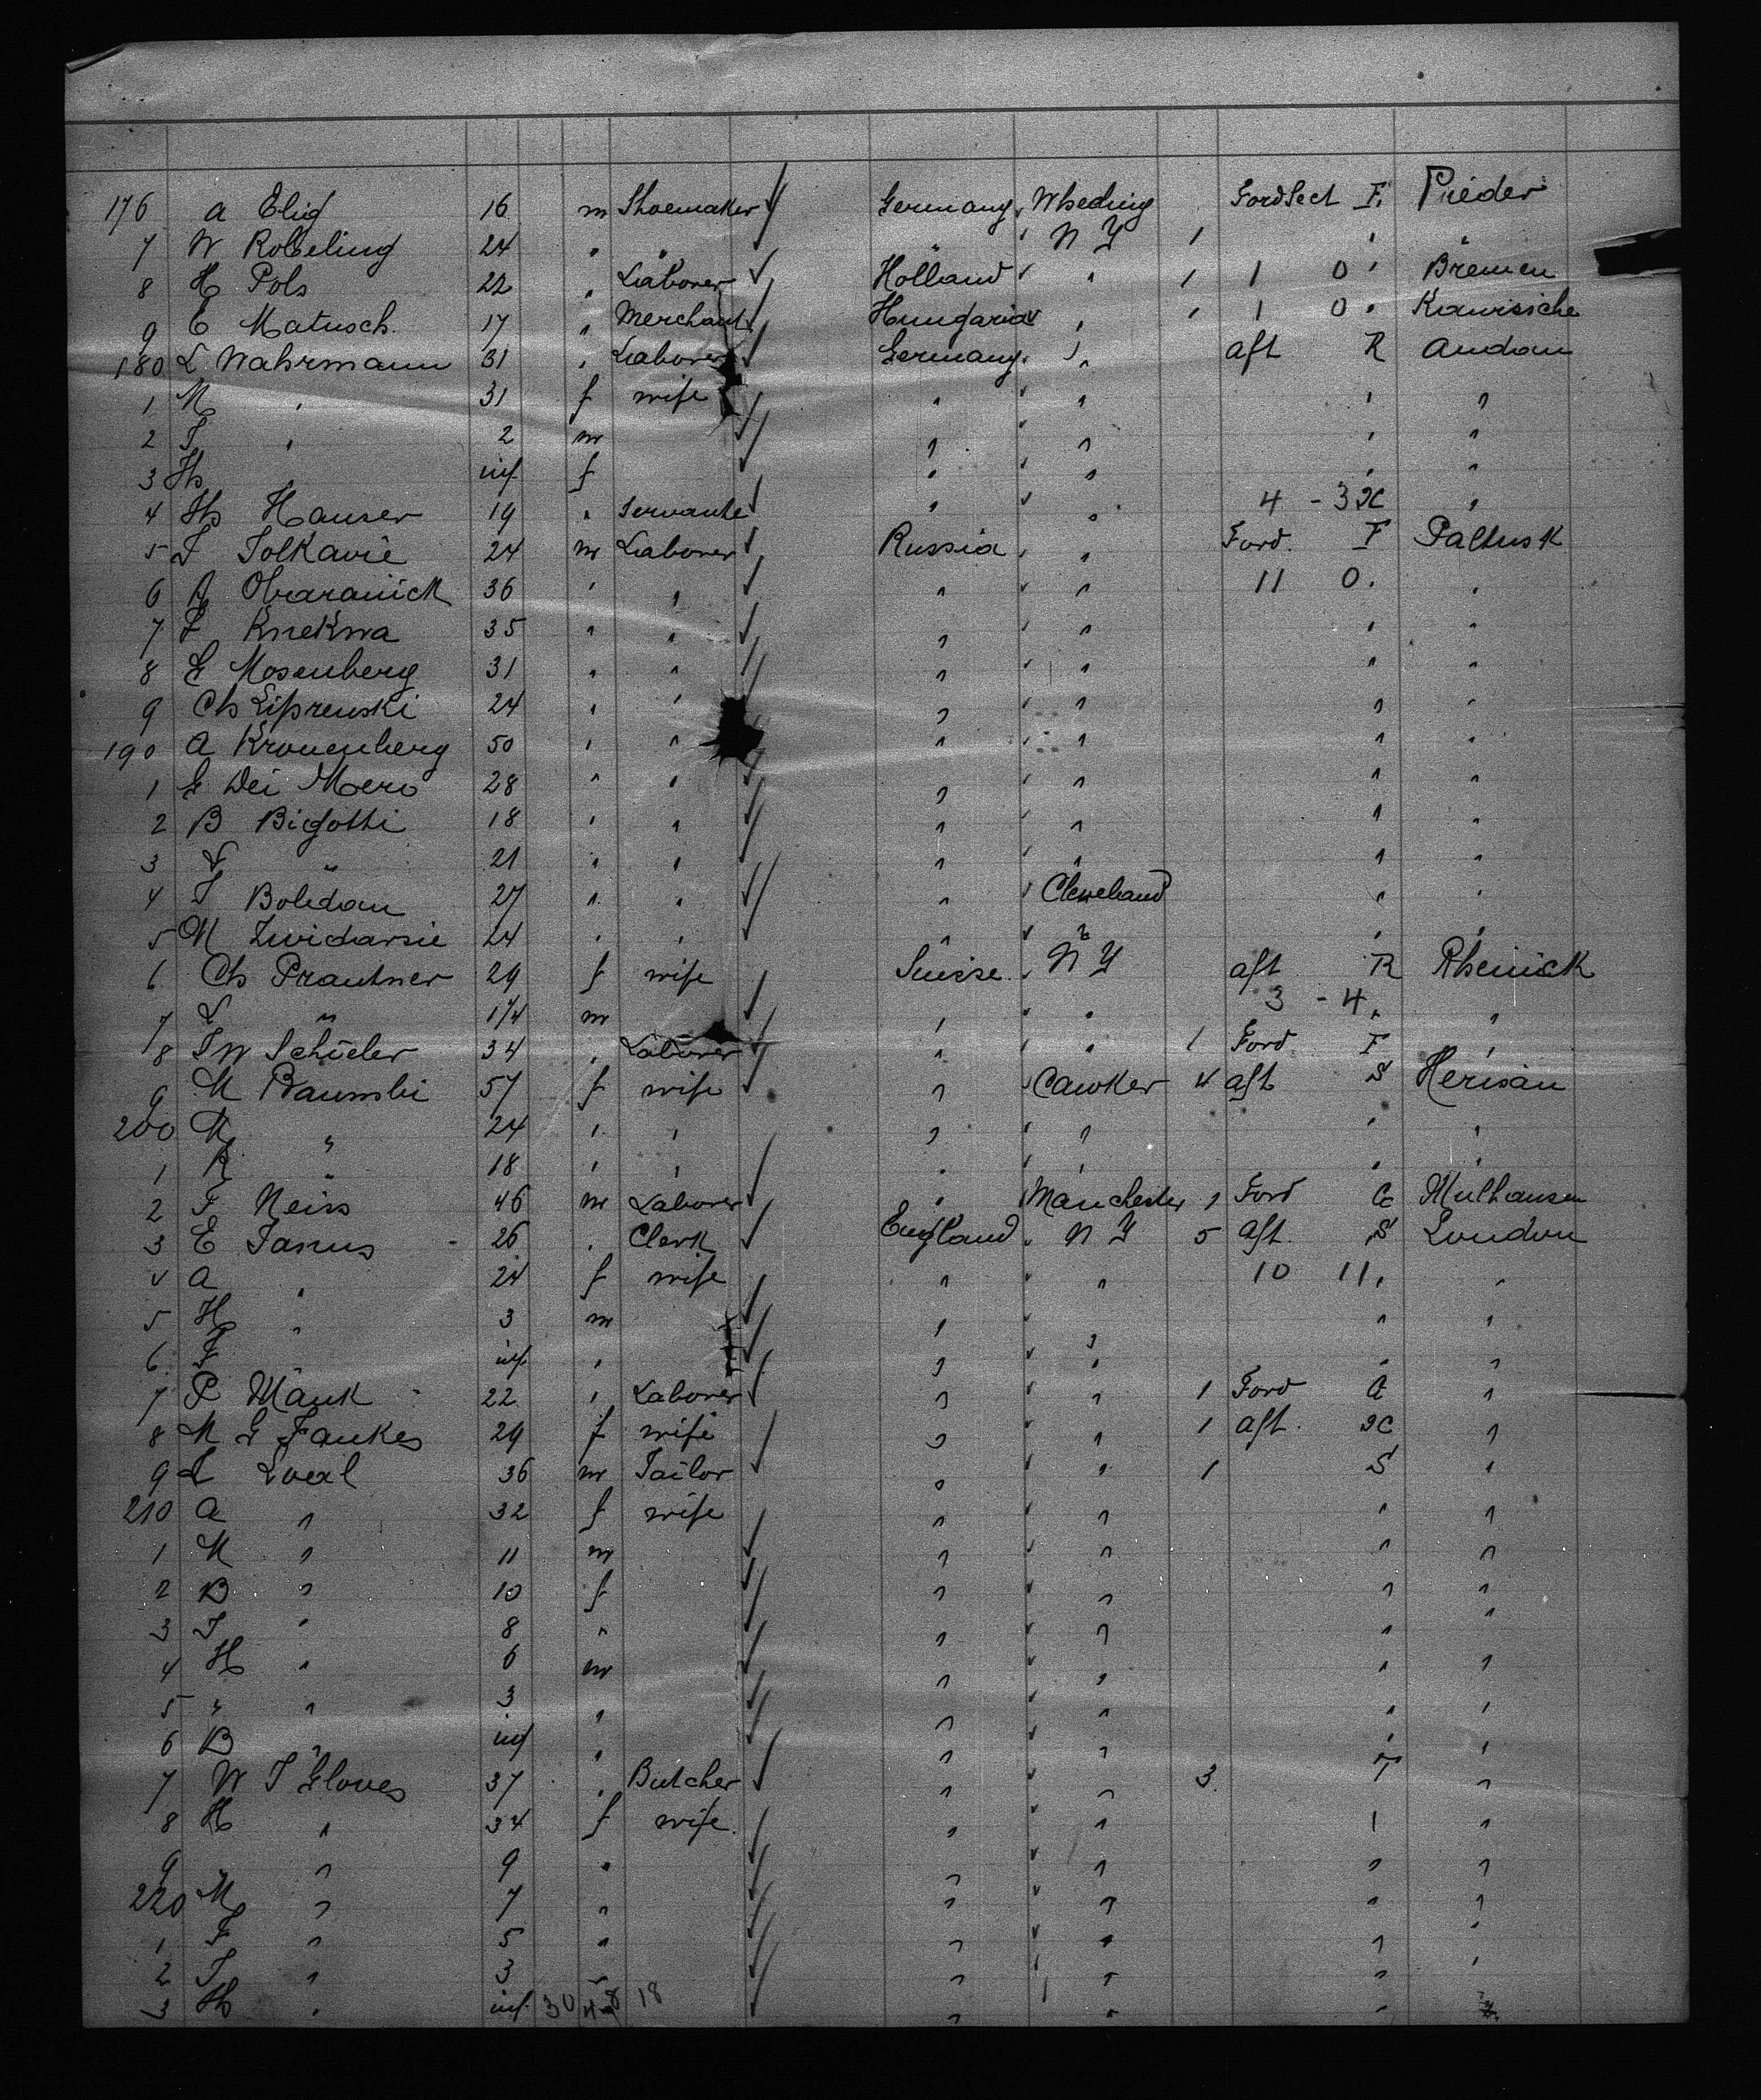 176 A Elig 16 m Shoemaker Germany Wheeling Ford Sect F. Prieder
7 W Robeling 24 " " " N Y 1 " "
8 H Pols 22 " Laborer Holland " 1 1 0 " Bremen
9 E Matusch. 17 " Merchant Hungaria " 1 1 0 "
180 L. Wahrmann 31 " Laborer Germany " aft R Andau
1 M " 31 f wife " " " "
2 " 2 m " " " "
3 Th " inf. f " " " "
4 Th Hauser 19 " Servante " " 4 - 3 "
5 Tolkavie 24 m Laborer Russia " Ford. F Paltusk
6 Obaranick 36 " " " " 11 0. "
7 Knekwa 35 " " " " " "
8 Mosenberg 31 " " " " " "
9 Ch Liprenski 24 " " " " " "
190 A Kronenberg 50 " " " " " "
1 Dei Mero 28 " " " " " "
2 B Bigotti 18 " " " " " "
3 " 21 " " " " " "
4 Boledan 27 " " " Cleveland " "
5 M Zwidarsie 24 " " " " " "
6 Ch Prautner 29 f wife Suisse N Y aft R Rheinick
7 L " 1 1/4 m " " 3 - 4 " "
8 J W Schüeler 34 " Laborer " " 1 Ford F "
9 M Baumli 57 f wife " Cawker 4 aft S Herisau
200 M " 24 " " " " " "
1 R " 18 " " " " " "
2 F Neiss 46 m Laborer " Manchester 1 Ford G Mulhausen
3 E Janus 26 " Clerk England N Y 5 aft. S London
4 A " 24 f wife " " 10 11 " "
5 H " 3 m " " " "
6 F " inf. " " " " "
7 P Mauk 22 " Laborer " " 1 Ford G "
8 M G Faukes 29 f wife " " 1 aft. "
9 L Loexl 36 m Tailor " " 1 S "
210 A " 32 f wife " " " "
1 M " 11 m " " " "
2 B " 10 f " " " "
3 " 8 " " " " "
4 H " 6 m " " " "
5 " " 3 " " " " "
6 B " inf " " " " "
7 W J Gloves 37 " Butcher " " 3. "
8 H " 34 f wife " " " "
9 " " 9 " " " " "
220 M " 7 " " " " "
1 F " 5 " " " " "
2 " 3 " " " " "
3 Th " inf. 30 18 " " "